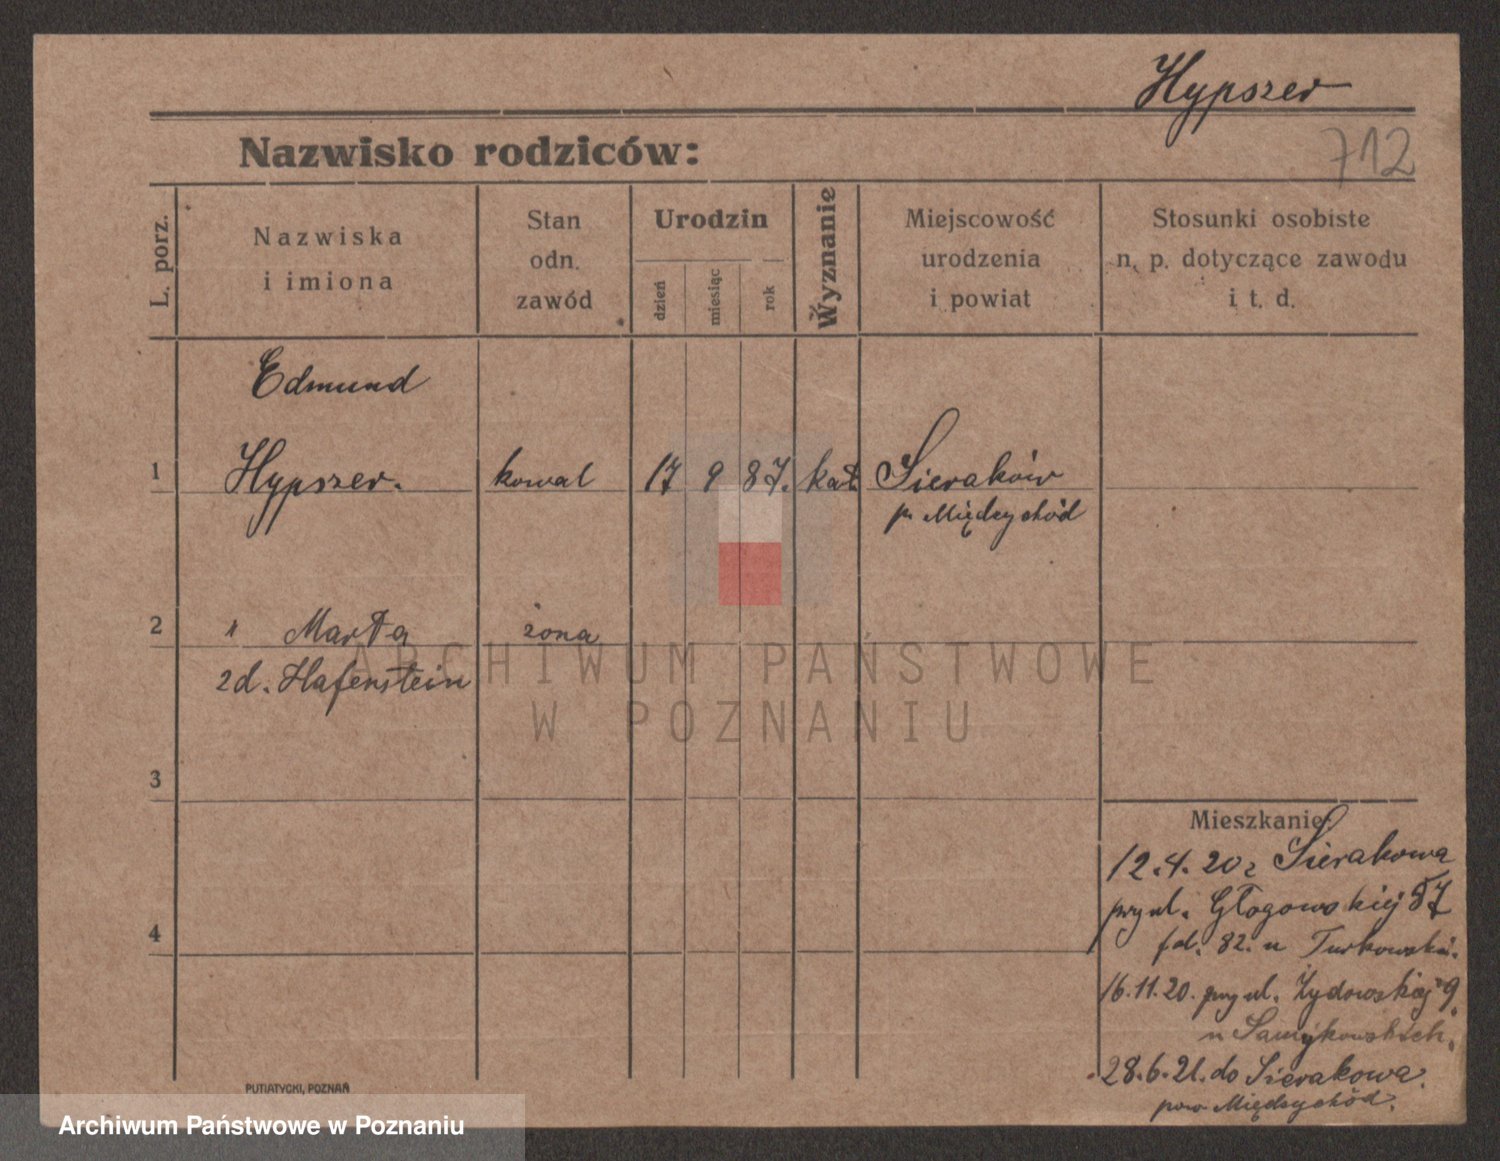 Hypszer
712
Nazwisko rodziców:
L. porz.
Nazwiska
i imiona
Stan
odn.
zawód
Urodzin
dzień
miesiąc
rok
Wyznanie
Miejscowość
urodzenia
i powiat
Stosunki osobiste
n. p. dotyczące zawodu
i t. d.
Edmund
1 Hypszer. kowal 17 9 87. kat. Sieraków
p. Międzychód
2 " Marta żona
zd. Hafenstein
ARCHIWUM PAŃSTWOWE
W POZNANIU
3
Mieszkanie:
12.4.20 z Sierakowa
przy ul. Głogowskiej 87
4
82. u
16.11.20. przy ul. Żydowskiej 9.
u
28.6.21. do Sierakowa.
pow. Międzychód.
PUTIATYCKI, POZNAŃ
Archiwum Państwowe w Poznaniu